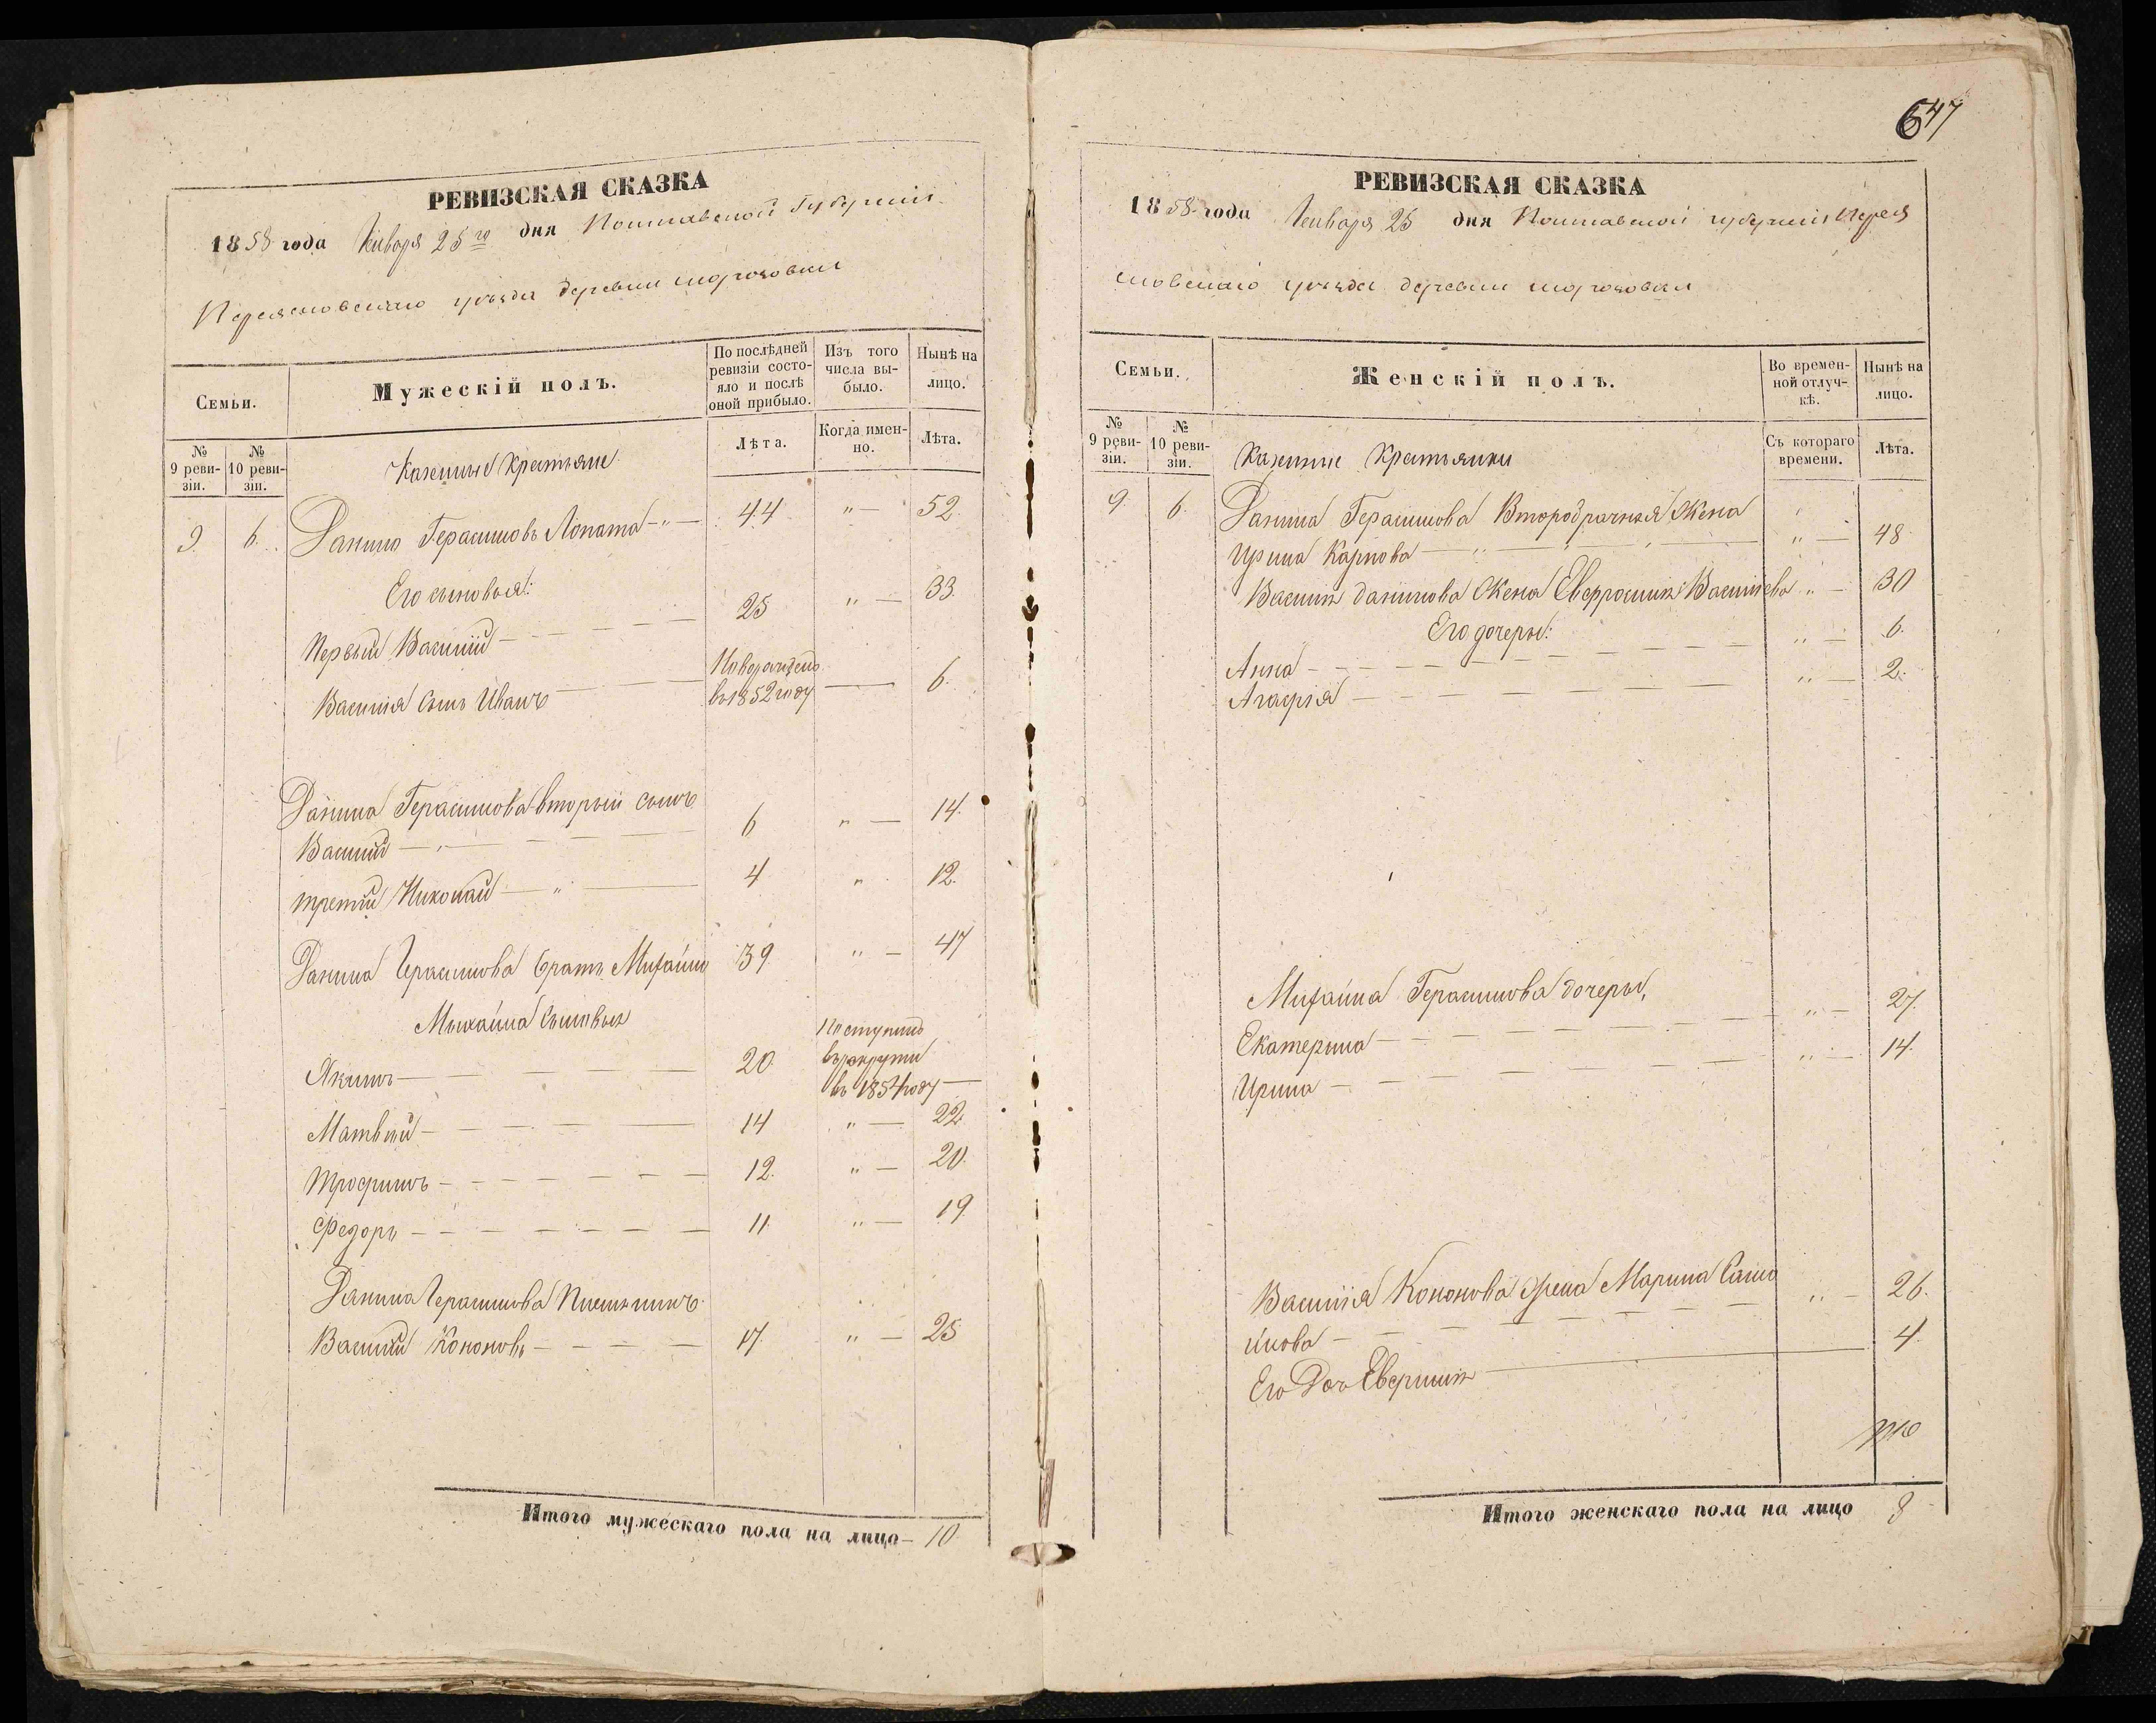 РЕВИЗСКАЯ СКАЗКА
1858 года Января 25го дня Полтавской Губерніи
Переясловскаго уѣзда деревни
Семьи.
Мужескій полъ.
По послѣдней ревизіи состояло и послѣ оной прибыло.
Изъ того числа выбыло.
Нынѣ на лицо.
№ 9 ревизіи.
№ 10 ревизіи.
Лѣта.
Когда именно.
Лѣта.
Казенные Крестьяне
9. 6. Данило Герасимовъ Лопата -„- 44 „ — 52.
Его сыновья:
Первый Василій — 25 „ — 33.
Василія сынъ Иванъ — Новорожденъ въ 1852 году — 6.
Данила Герасимова вторый сынъ
Василий — 6 „ — 14.
третий Николай — „ — 4 „ 12.
Данила Герасимова братъ Михайло 39 „ — 47
Михайла сыновья
Якимъ — 20. Поступилъ въ рекруты въ 1854 году —
Матвѣй — 14 „ — 22
Трофимъ — 12. „ — 20.
Федоръ — 11. „ — 19.
Данила Герасимова Племянникъ
Василий Кононовъ — 17. „ — 25
Итого мужескаго пола на лицо — 10
647
РЕВИЗСКАЯ СКАЗКА
1858 года Января 25 дня Полтавской губерніи Перея
словскаго уѣзда деревни
Семьи.
Женскій полъ.
Во временной отлучкѣ.
Нынѣ на лицо.
№ 9 ревизіи.
№ 10 ревизіи.
Съ котораго времени.
Лѣта.
Казенные Крестьянки
9. 6. Данила Герасимова Второбрачная Жена
Ирина Карпова — „ — „ — 48
Василія Данилова Жена Евфросинія Васильева „ — 30
Его дочеры:
Анна — „ — 6.
Агафія — „ — 2.
Михайла Герасимова дочеры,
Екатерина — „ — 27.
Ирина — „ — 14.
Василія Кононова жена Марина Само
йлова — „ — 26.
Его Доч — 4.
Итого женскаго пола на лицо 8